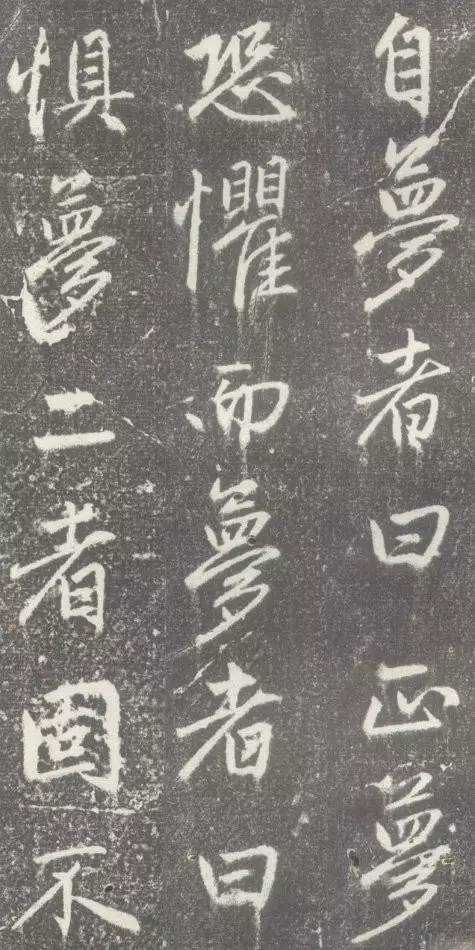 自夢者曰正夢
恐懼而夢者曰
惧夢二者固不